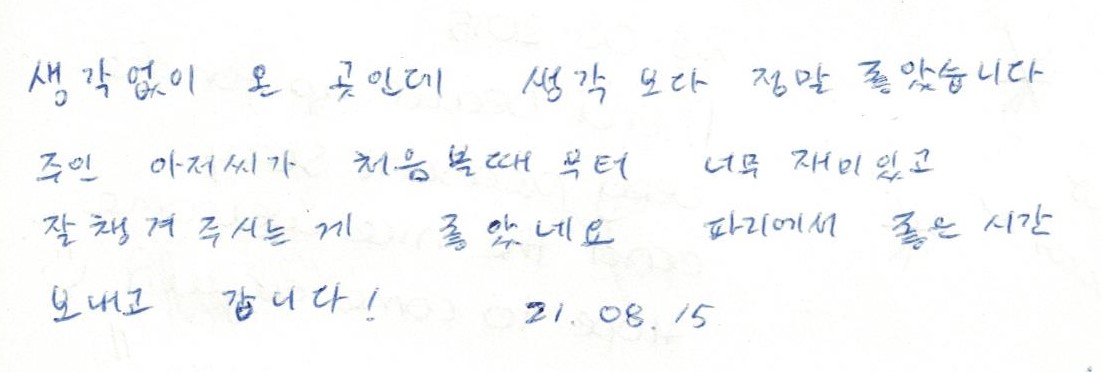 생각없이 온 곳인데 생각 보다 정말 좋았습니다
주인 아저씨가 처음 볼때 부터 너무 재미있고
잘 챙겨 주시는 게 좋았네요 파리에서 좋은 시간
보내고 갑니다! 21. 08. 15